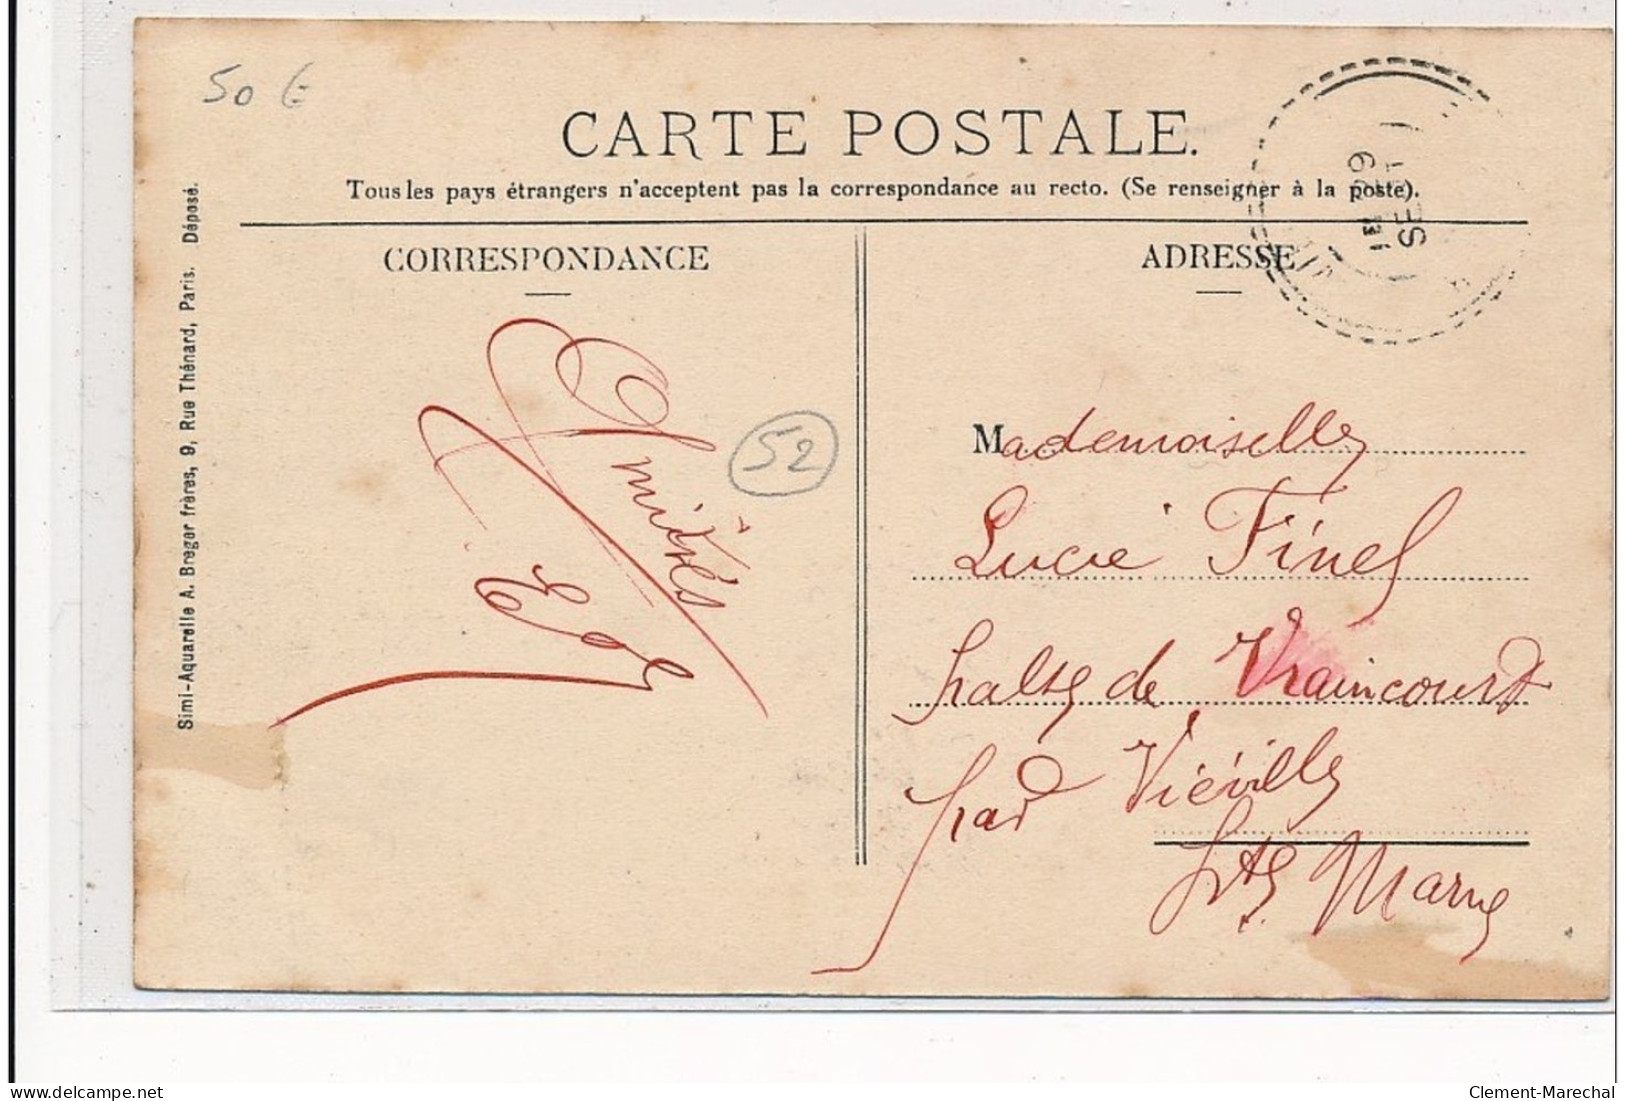 50 €
CARTE POSTALE.
Tous les pays étrangers n'acceptent pas la correspondance au recto. (Se renseigner à la poste).
CORRESPONDANCE
ADRESSE
Simi-Aquarelle A. Breger frères, 9, Rue Thénard, Paris. Déposé.
Amitiés
52
Mademoiselle
Lucie Finel
halte de Vraincourt
par Viéville
Hte Marne
delcampe.net
Clement-Marechal